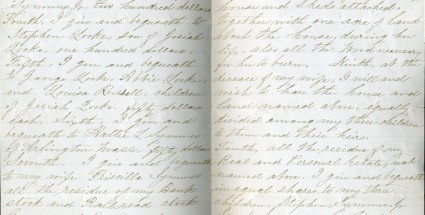 Symmes Jr two hundred dollars
Fourth, I give and bequeath to
Stephen Locke, son of Josiah
Locke, one hundred dollars.
Fifth, I give and bequeath
to George Locke, Abbie Locke,
and Louisa Russell, children
of Josiah Locke, fifty dollars
each. Sixth, I give and
bequeath to Hattie L Symmes
of Arlington Mass, fifty dollars
Seventh. I give and bequeath
to my wife Priscilla Symmes
all the residue of my Bank
stock and Railroad stock
house and Sheds attached,
together with one acre of land
about the house, during her
life, also all the wood necessary
for her to burn. Ninth, at the
decease of my wife, I will and
wish to have the house and
land named above, equally
divided among my three children
to them and their heirs.
Tenth, all the residue of my
Real and Personal Estate, not
named above, I give and bequeath
in equal shares to my three
children, Stephen Symmes Jr